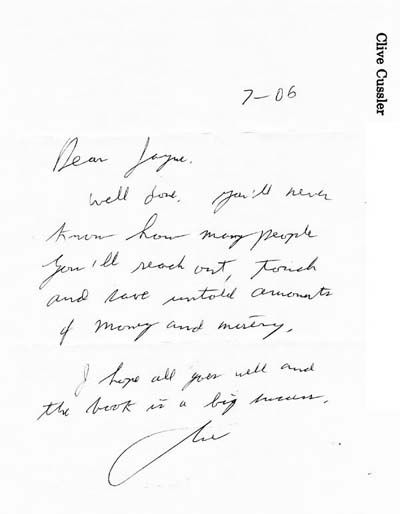 Clive Cussler
7-06
Dear Jayne.
Well done. You'll never
know how many people
you'll reach out, touch
and save untold amounts
of money and misery.
I hope all goes well and
the book is a big success.
Clive